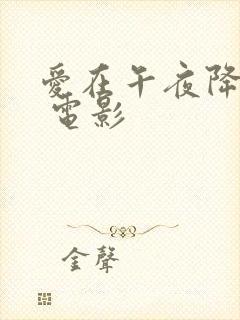 愛在午夜降
電影
金聲